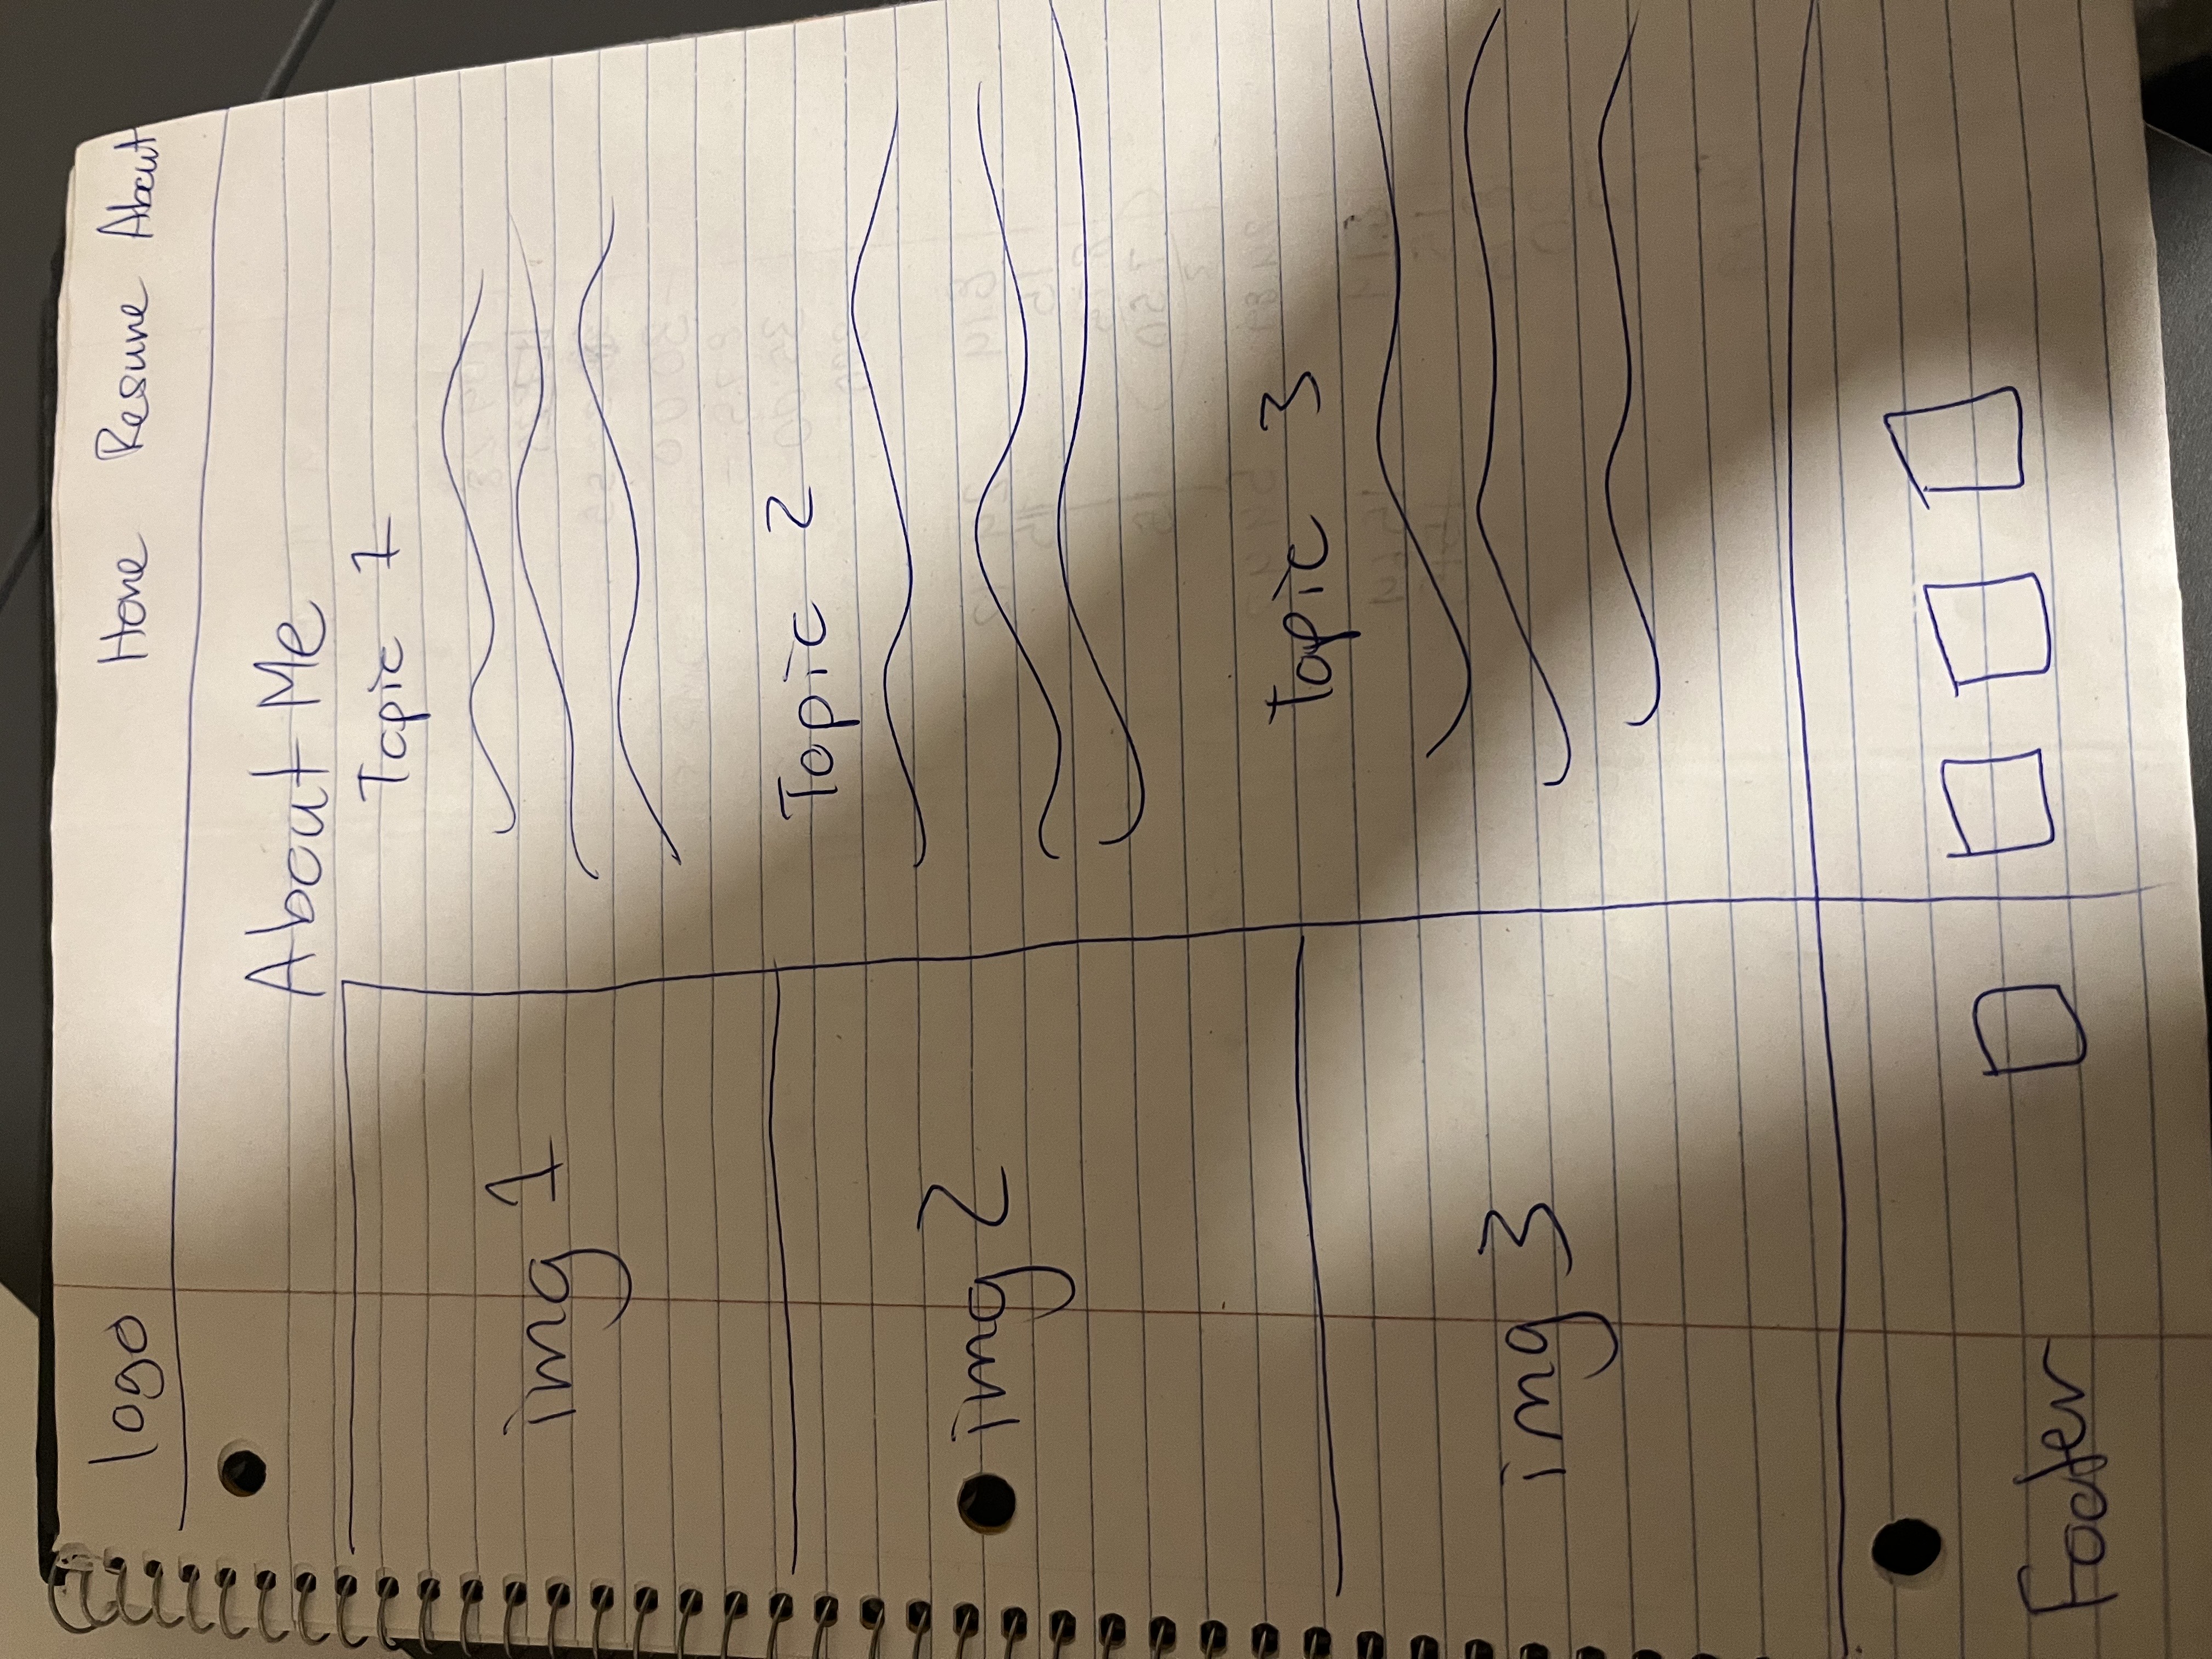 logo Home Resume About
About Me
Topic 1
img 1
Topic 2
img 2
Topic 3
img 3
Footer